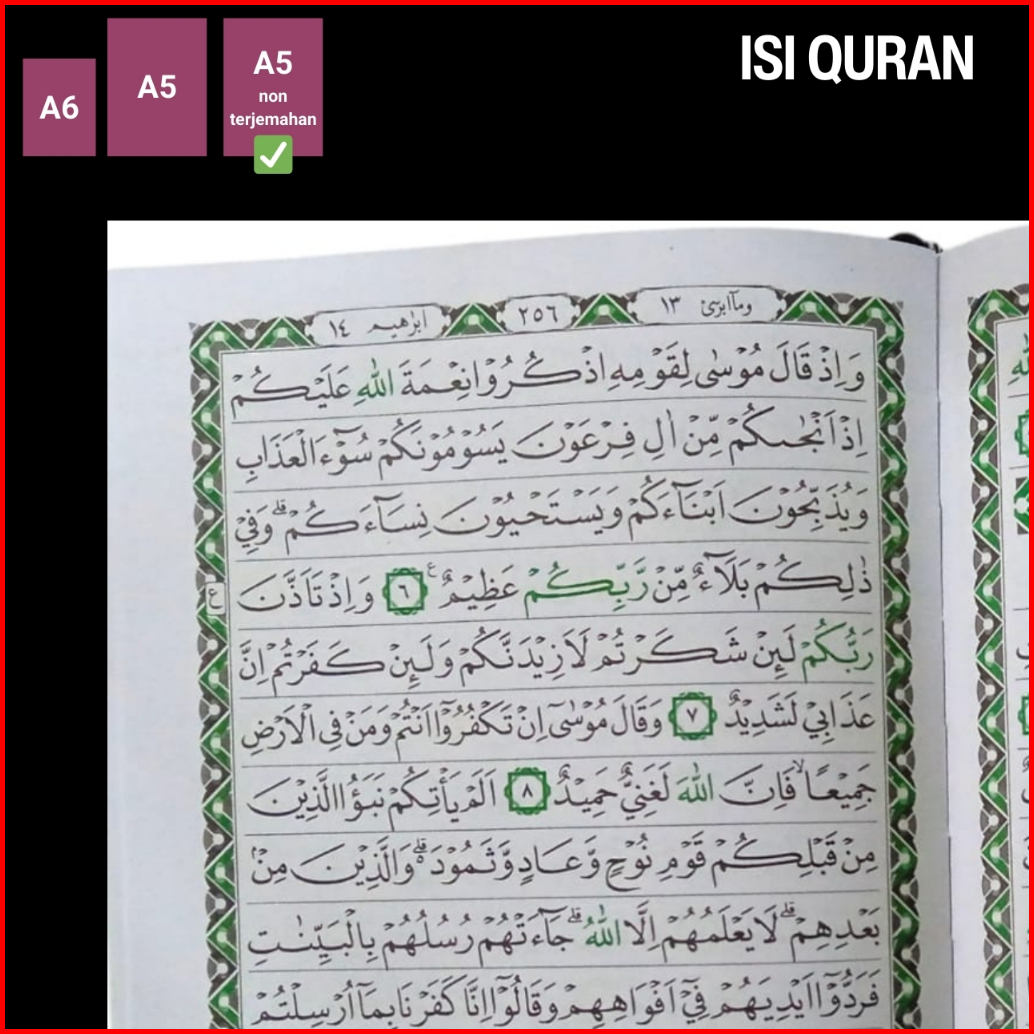 A6
A5
A5
non
terjemahan
ISI QURAN
ابرٰهيم ١٤
٢٥٦
وماابرئ ١٣
وَاِذْ قَالَ مُوْسٰى لِقَوْمِهِ اذْكُرُوْا نِعْمَةَ اللّٰهِ عَلَيْكُمْ
اِذْ اَنْجٰىكُمْ مِّنْ اٰلِ فِرْعَوْنَ يَسُوْمُوْنَكُمْ سُوْۤءَ الْعَذَابِ
وَيُذَبِّحُوْنَ اَبْنَاۤءَكُمْ وَيَسْتَحْيُوْنَ نِسَاۤءَكُمْ ۗ وَفِيْ
ذٰلِكُمْ بَلَاۤءٌ مِّنْ رَّبِّكُمْ عَظِيْمٌ ࣖ ٦ وَاِذْ تَاَذَّنَ
ع
رَبُّكُمْ لَىِٕنْ شَكَرْتُمْ لَاَزِيْدَنَّكُمْ وَلَىِٕنْ كَفَرْتُمْ اِنَّ
عَذَابِيْ لَشَدِيْدٌ ٧ وَقَالَ مُوْسٰٓى اِنْ تَكْفُرُوْٓا اَنْتُمْ وَمَنْ فِى الْاَرْضِ
جَمِيْعًا ۙ فَاِنَّ اللّٰهَ لَغَنِيٌّ حَمِيْدٌ ٨ اَلَمْ يَأْتِكُمْ نَبَؤُا الَّذِيْنَ
مِنْ قَبْلِكُمْ قَوْمِ نُوْحٍ وَّعَادٍ وَّثَمُوْدَ ۗ وَالَّذِيْنَ مِنْۢ
بَعْدِهِمْ ۗ لَا يَعْلَمُهُمْ اِلَّا اللّٰهُ ۗ جَاۤءَتْهُمْ رُسُلُهُمْ بِالْبَيِّنٰتِ
فَرَدُّوْٓا اَيْدِيَهُمْ فِيْٓ اَفْوَاهِهِمْ وَقَالُوْٓا اِنَّا كَفَرْنَا بِمَآ اُرْسِلْتُمْ